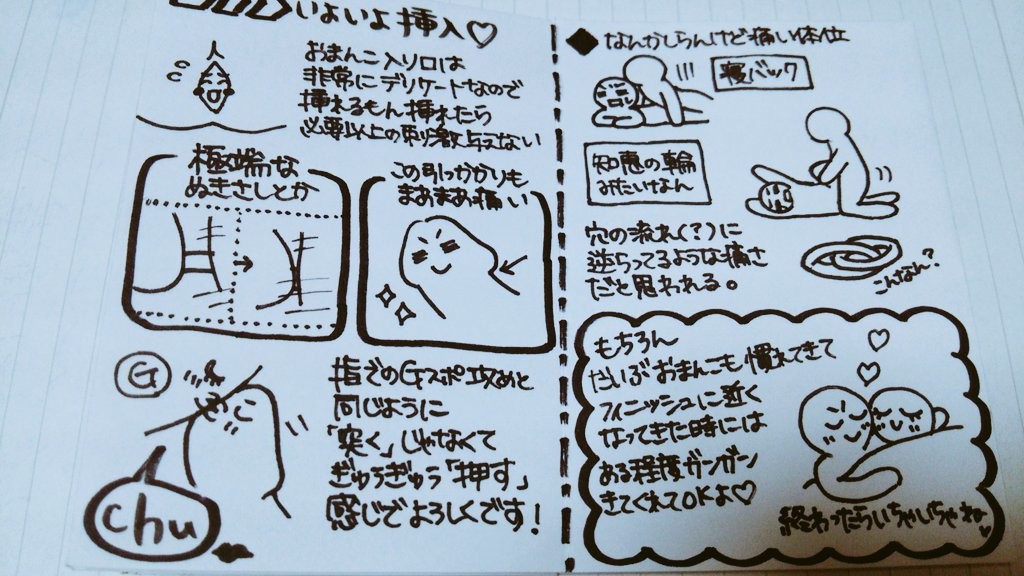 いよいよ挿入♡
おまんこ入り口は
非常にデリケートなので
挿れるもん挿れたら
必要以上の刺激与えない
極端な
ぬきさしとか
この引っかかりも
まあまあ痛い
G
指でのGスポ攻めと
同じように
「突く」じゃなくて
ぎゅうぎゅう「押す」
感じでよろしくです!
chu
◆なんかしらんけど痛い体位
寝バック
知恵の輪
みたいなん
穴の流れ(?)に
逆らってるような痛さ
だと思われる。
こんなん?
もちろん
だいぶおまんこも慣れてきて
フィニッシュに近く
なってきた時には
ある程度ガンガン
きてくれてOKよ♡
終わったらいちゃいちゃね♥